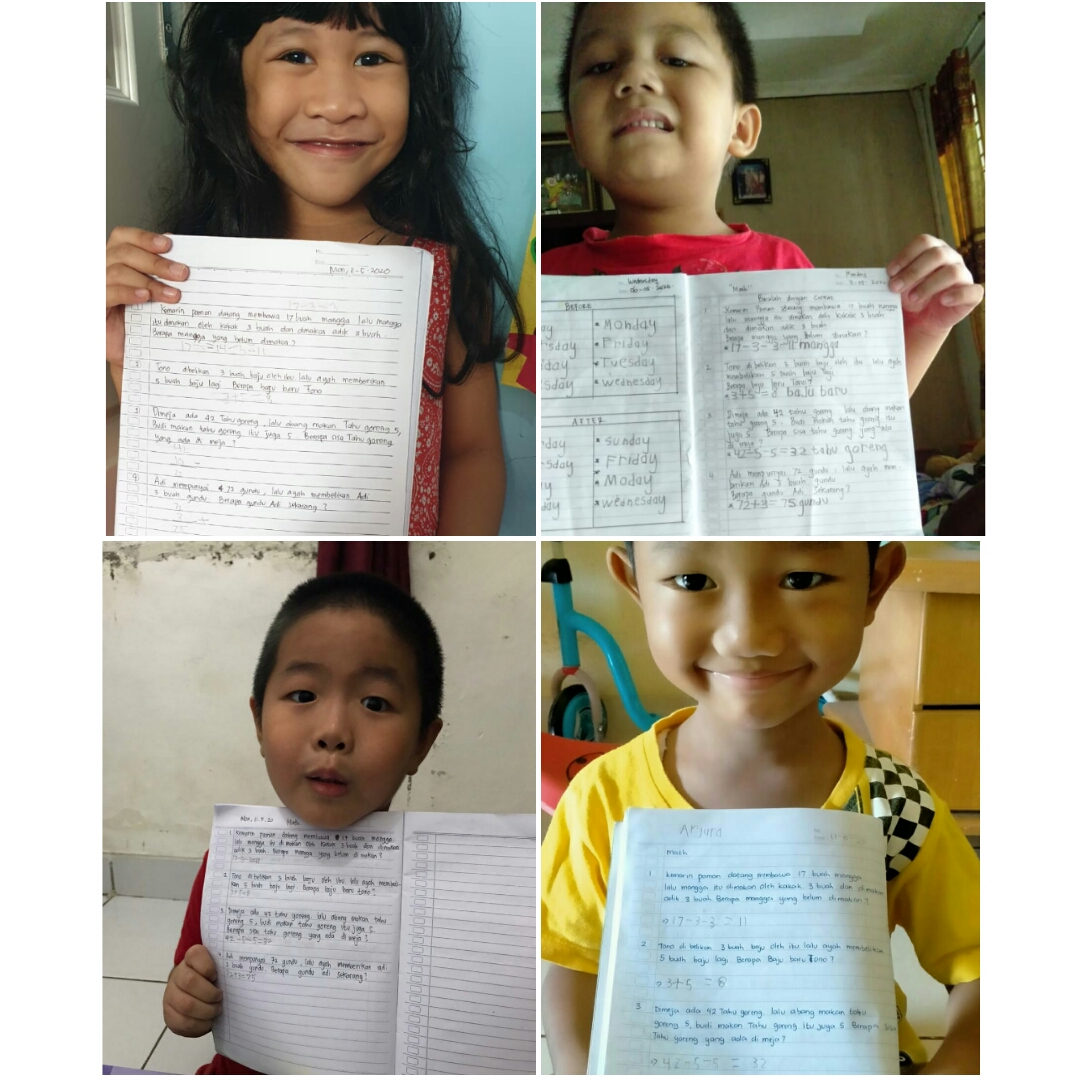 Mon, 2-5-2020
Kemarin paman datang membawa 17 buah mangga lalu mangga
itu dimakan oleh kakak 3 buah dan dimakan adik 3 buah
Berapa mangga yang belum dimakan?
Tono dibelikan 3 buah baju oleh ibu lalu ayah memberikan
5 buah baju lagi. Berapa baju baru Tono
3+5 = 8
3) Dimeja ada 42 Tahu goreng, lalu abang makan Tahu goreng 5,
Budi makan tahu goreng itu juga 5. Berapa sisa Tahu Goreng
yang ada di meja?
Adi mempunyai 72 gundu, lalu ayah membelikan Adi
3 buah gundu. Berapa gundu Adi sekarang?
75
Wednesday
BEFORE
Monday
Friday
Tuesday
Wednesday
AFTER
Sunday
Friday
Moday
Wednesday
"Math"
Berabah dengan
1 Kemarin Paman datang membawa 17 buah mangga
lalu mangga itu dimakan oleh kakak 3 buah
dan dimakan adik 3 buah
Berapa mangga yang belum dimakan?
17-3-3=11 mangga
2. Tono di belikan 3 buah baju oleh ibu, lalu ayah
membelikan 5 buah baju lagi
Berapa baju baru Tono?
3+5=8 baju baru
3 Dimeja ada 42 tahu goreng, lalu abang makan
tahu goreng 5. Budi makan tahu goreng itu
juga 5. Berapa sisa tahu goreng yang ada
di meja?
42-5-5=32 tahu goreng
4 Adi mempunyai 72 gundu, lalu ayah mem-
berikan Adi 3 buah gundu
Berapa gundu Adi sekarang?
72+3=75 gundu
Math
1. Kemarin paman datang membawa 17 buah mangga
lalu mangga itu di makan oleh Kakak 3 buah dan dimakan
adik 3 buah Berapa mangga yang belum di makan?
2. Tono di belikan 3 buah baju oleh ibu, lalu ayah membeli
kan 5 buah baju lagi. Berapa baju baru Tono?
3 Dimeja ada 42 tahu goreng, lalu abang makan tahu
goreng 5, budi makan tahu goreng itu juga 5.
Berapa sisa tahu goreng yang ada di meja?
Adi mempunyai 72 gundu, lalu ayah memberikan adi
3 buah gundu. Berapa gundu adi sekarang?
Arjuna
Math
1 kemarin paman datang membawa 17 buah mangga
lalu mangga itu dimakan oleh kakak 3 buah dan dimakan
adik 3 buah Berapa mangga yang belum dimakan?
17-3-3 = 11
2 Tono di belikan 3 buah baju oleh ibu lalu ayah membelikan
5 buah baju lagi Berapa Baju baru Tono?
3+5 = 8
3 Dimeja ada 42 Tahu goreng. lalu abang makan tahu
goreng 5, budi makan Tahu goreng itu juga 5 Berapa sisa
Tahu goreng yang ada di meja?
42-5-5 = 32